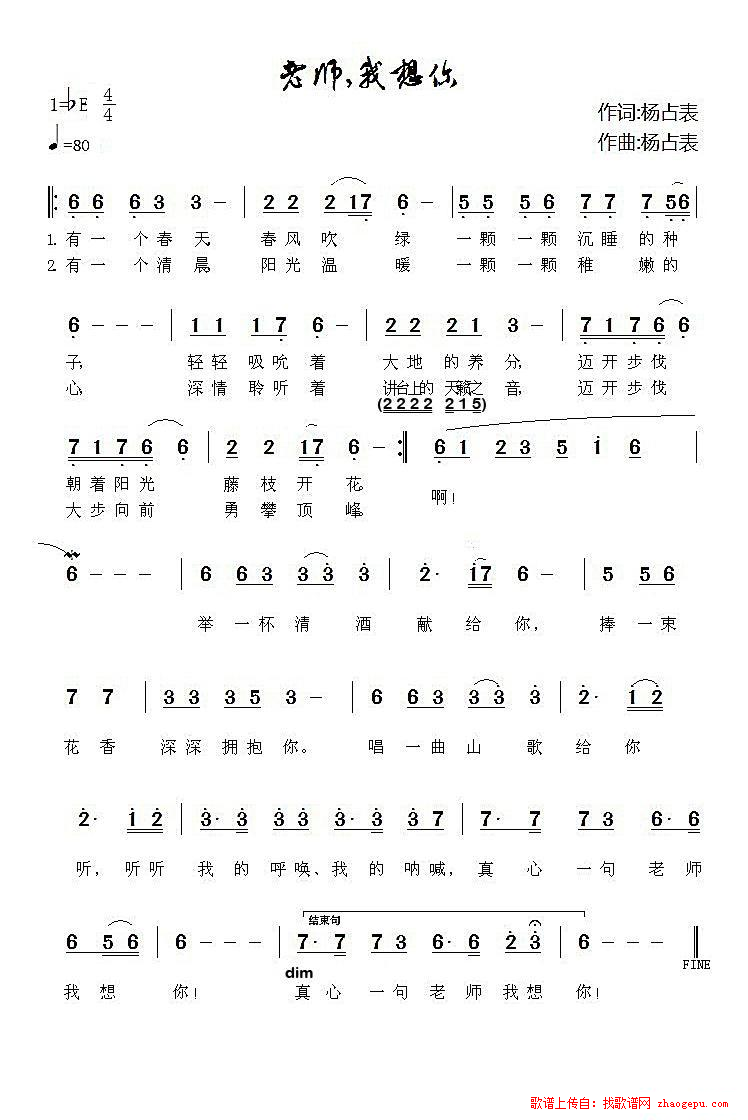 老师,我想你
1=♭E 4/4
作词:杨占表
♩=80
作曲:杨占表
6 6 6 3 3 - | 2 2 2 17 6 - | 5 5 5 6 7 7 7 56 |
1.有一个春天,春风吹绿一颗一颗沉睡的种
2.有一个清晨,阳光温暖一颗一颗稚嫩的
6 - - - | 1 1 1 7 6 - | 2 2 2 1 3 - | 7 1 7 6 6
子,轻轻吸吮着大地的养分,迈开步伐
心,深情聆听着讲台上的天籁之音,迈开步伐
(2 2 2 2 2 1 5)
7 1 7 6 6 | 2 2 17 6 - :| 6 1 2 3 5 i 6 |
朝着阳光藤枝开花
大步向前勇攀顶峰
啊!
6 - - - | 6 6 3 3 3 3 | 2· i7 6 - | 5 5 6
举一杯清酒献给你,捧一束
7 7 | 3 3 3 5 3 - | 6 6 3 3 3 3 | 2· 1 2
花香深深拥抱你。唱一曲山歌给你
2· 1 2 | 3· 3 3 3 3· 3 3 7 | 7· 7 7 3 6· 6
听,听听我的呼唤、我的呐喊,真心一句老师
结束句
6 5 6 | 6 - - - | 7· 7 7 3 6· 6 2 3 | 6 - - - ‖
dim
FINE
我想你!真心一句老师我想你!
歌谱上传自：找歌谱网 zhaogepu.com